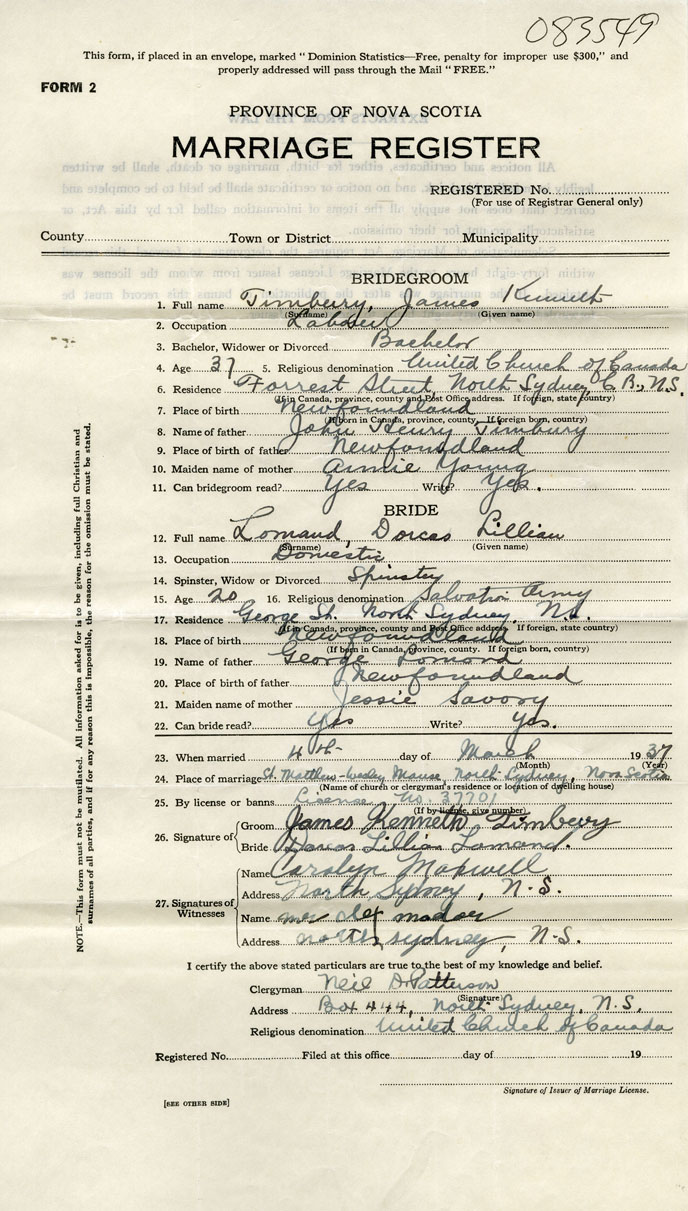 083549
This form, if placed in an envelope, marked "Dominion Statistics—Free, penalty for improper use $300," and
properly addressed will pass through the Mail "FREE."
FORM 2
PROVINCE OF NOVA SCOTIA
MARRIAGE REGISTER
REGISTERED No.
(For use of Registrar General only)
County Town or District Municipality
BRIDEGROOM
1. Full name Timbury, James Kenneth
(Surname) (Given name)
2. Occupation Labourer
3. Bachelor, Widower or Divorced Bachelor
4. Age 37 5. Religious denomination United Church of Canada
6. Residence Forrest Street, North Sydney C.B., N.S.
(If in Canada, province, county and Post Office address. If foreign, state country)
7. Place of birth Newfoundland
(If born in Canada, province, county. If foreign born, country)
8. Name of father John Henry Timbury
9. Place of birth of father Newfoundland
10. Maiden name of mother Annie Young
11. Can bridegroom read? Yes Write? Yes.
BRIDE
12. Full name Lomand, Dorcas Lillian
(Surname) (Given name)
13. Occupation Domestic
14. Spinster, Widow or Divorced Spinster
15. Age 20 16. Religious denomination Salvation Army
17. Residence George St. North Sydney, N.S.
(If in Canada, province, county and Post Office address. If foreign, state country)
18. Place of birth Newfoundland
(If born in Canada, province, county. If foreign born, country)
19. Name of father George Lomond
20. Place of birth of father Newfoundland
21. Maiden name of mother Jessie Savory
22. Can bride read? Yes Write? Yes.
23. When married 4th day of March 1937
(Month) (Year)
24. Place of marriage St. Matthew-Wesley Manse, North Sydney, Nova Scotia
(Name of church or clergyman's residence or location of dwelling house)
25. By license or banns License No. 37701
(If by license, give number)
26. Signature of Groom James Kenneth Timbury
Bride Dorcas Lillian Lomand.
27. Signatures of Witnesses
Name Carolyn Maxwell
Address North Sydney, N.S.
Name Mrs
Address North Sydney, N.S.
I certify the above stated particulars are true to the best of my knowledge and belief.
Clergyman Neil D. Patterson
(Signature)
Address Box 444, North Sydney, N.S.
Religious denomination United Church of Canada
Registered No. Filed at this office day of 19
Signature of Issuer of Marriage License.
[SEE OTHER SIDE]
NOTE.—This form must not be mutilated. All information asked for is to be given, including full Christian and
surnames of all parties, and if for any reason this is impossible, the reason for the omission must be stated.